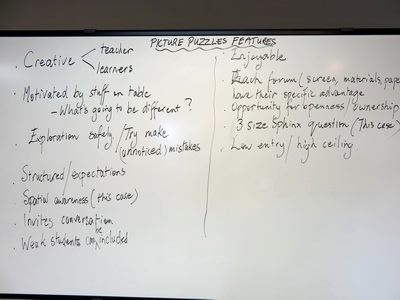 PICTURE PUZZLES FEATURES
. Creative < teacher
learners
. Motivated by stuff on table
- What's going to be different?
. Exploration safely / Try make
(unnoticed) mistakes
. Structured / expectations
. Spatial awareness (this case)
. Invites conversation
. Weak students can be included
. Injoyable
. Each forum (screen, materials, paper
have their specific advantage
. Opportunity for openness / ownership
. 3 size Sphinx question (This case)
. Low entry / high ceiling.